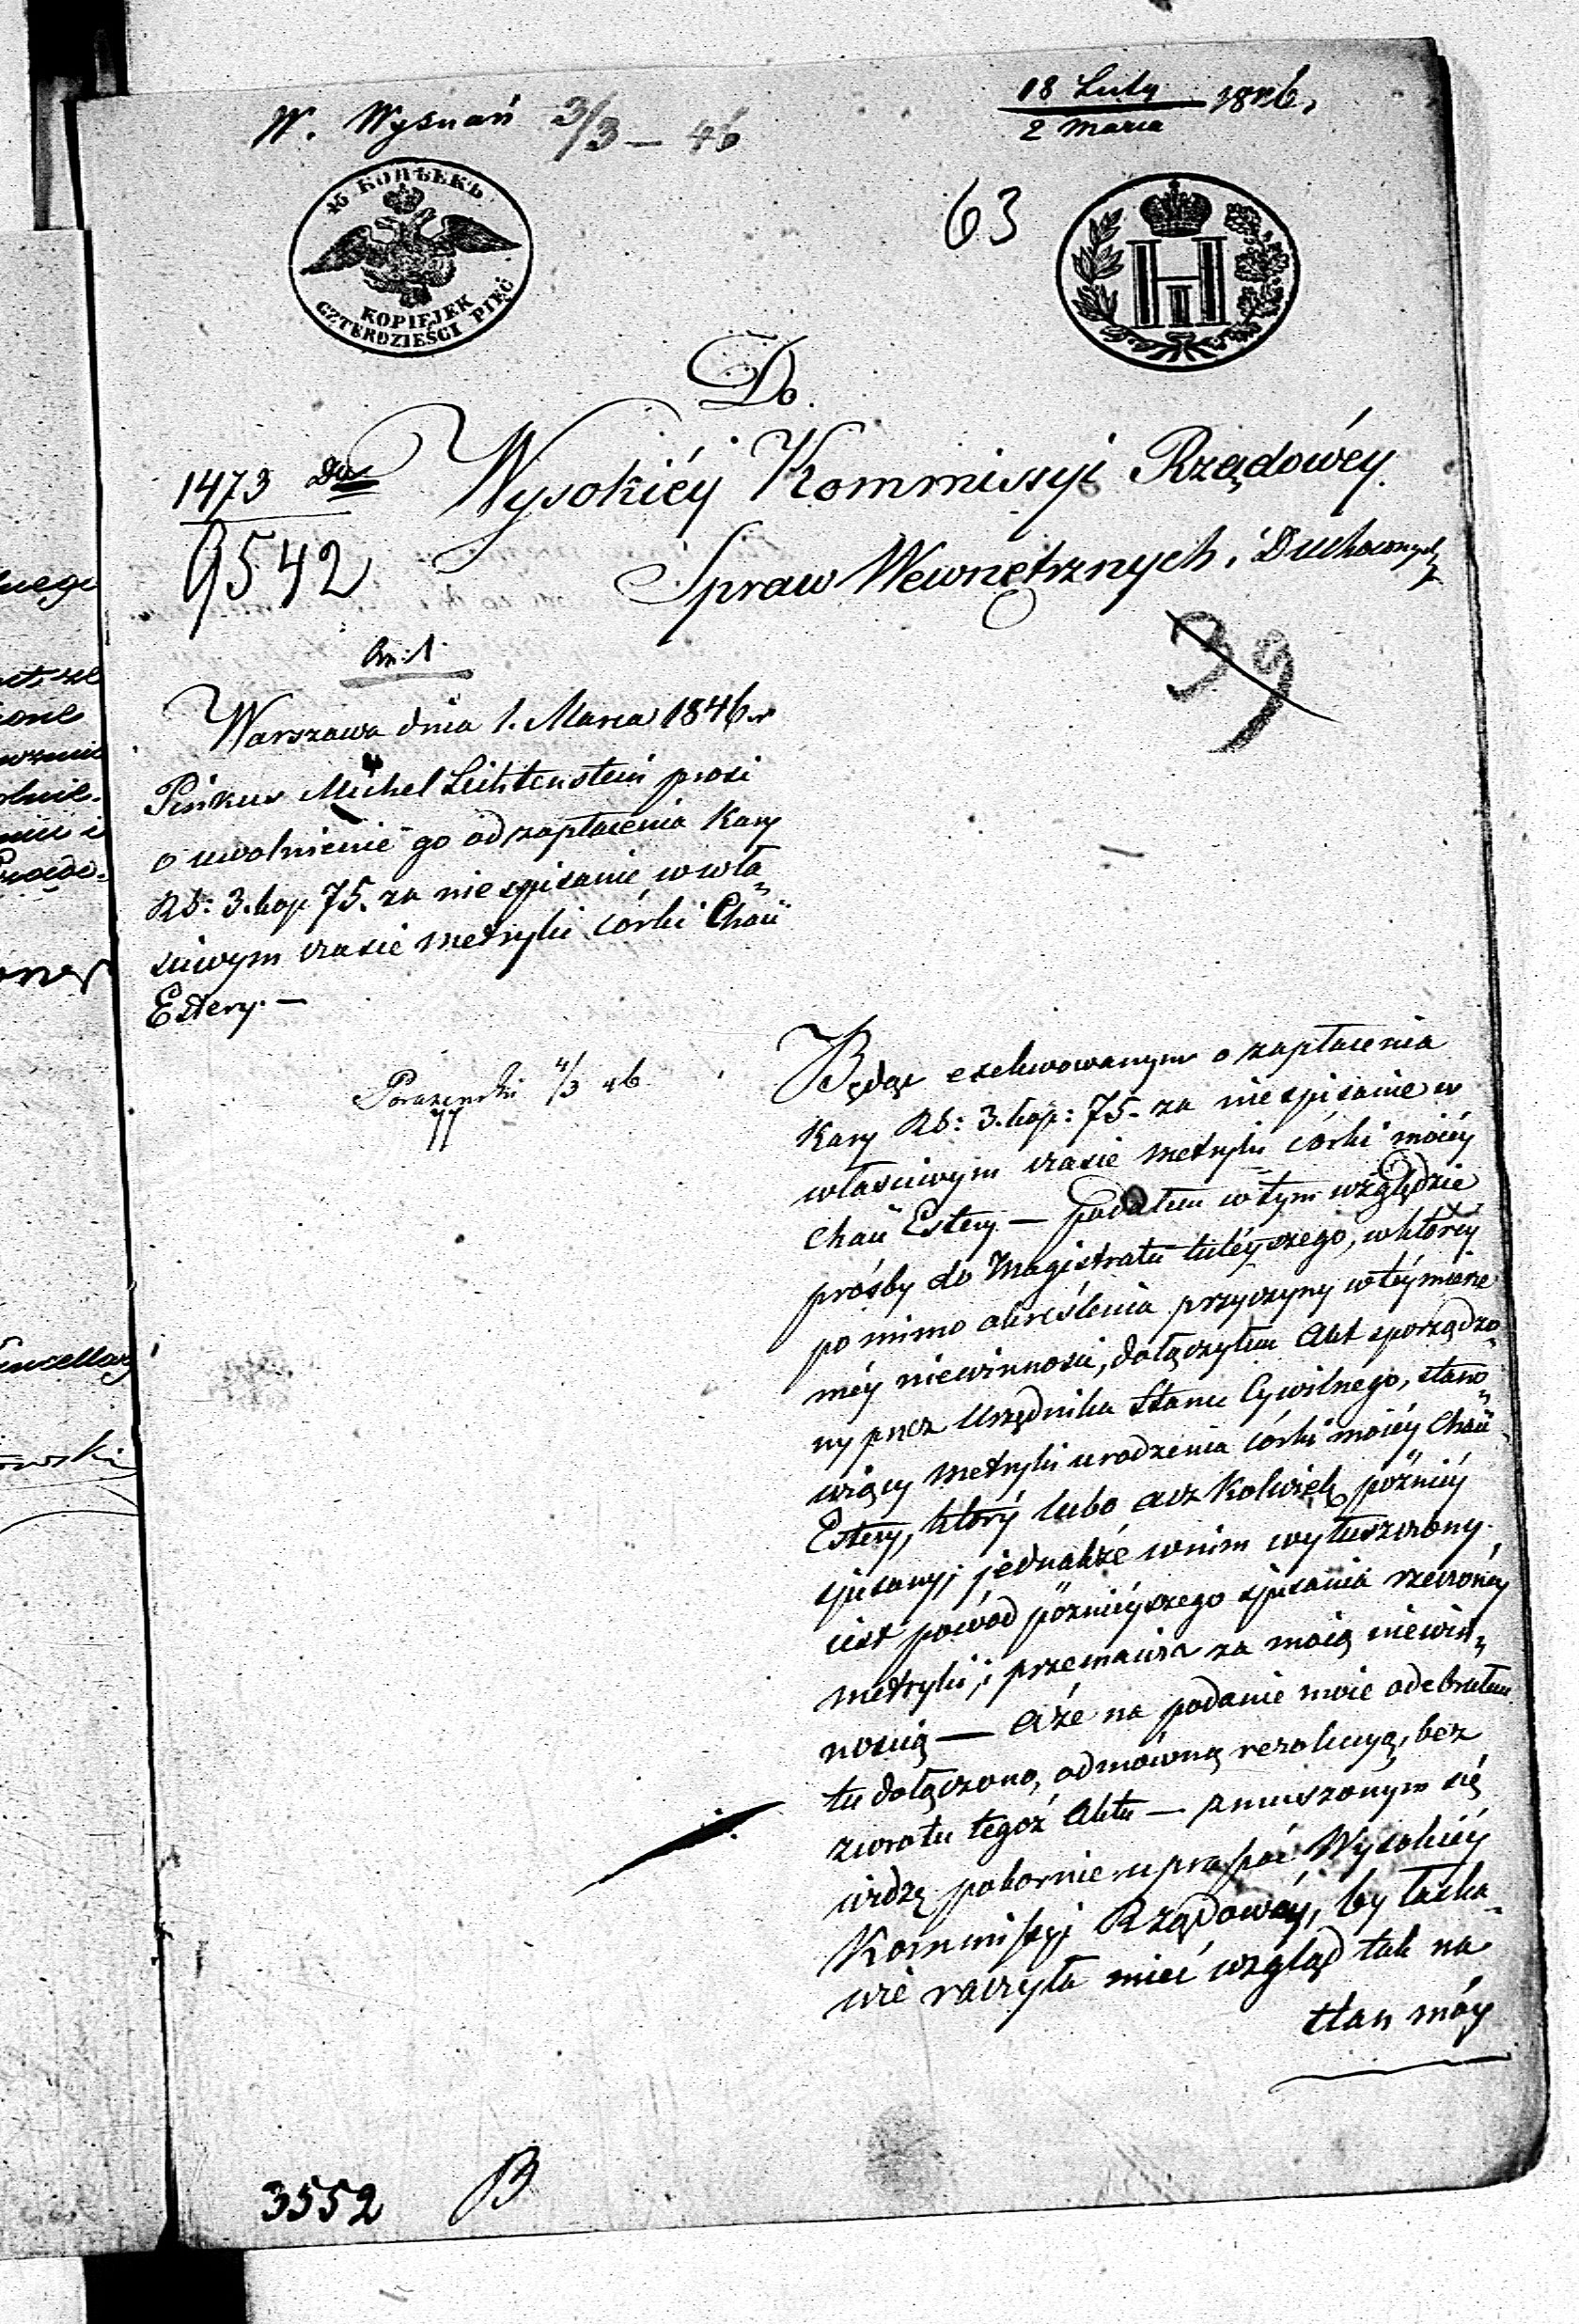 W. Wyznań 3/3 – 46
18 Luty
2 Marca 1846,
45 КОПѢЕКЪ
KOPIEJEK
CZTERDZIEŚCI PIĘĆ
63
Н
Do
1473
Wysokiéy Kommissyi Rządowéy
9542
Spraw Wewnętrznych, i Duchownych
39
Warszawa dnia 1. Marca 1846 r
Pinkus Michel Lichtenstein prosi
o uwolnienie go od zapłacenia Kary
RS: 3. kop 75. za nie spisanie w wła„
sciwym czasie metryki córki Chai
Estery. —
4/3 46
Będąc exekwowanym o zapłacenia
Kary RS: 3. kop: 75. za nie spisanie w
właściwym czasie metryki córki moiéy
Chai Estery — podałem w tym względzie
prośby do Magistratu tutéyszego, w któréy
po mimo określenia przyczyny w téy mierze
méy niewinnosci, dołączyłem Akt sporządzo„
ny przez Urzędnika Stanu Cywilnego, stano„
wiący metryki urodzenia córki moiéy Chai
Estery, który lubo acz kolwiek późniéy
spisany; jednakże w nim wytuszczony
iest powód późnieyszego spisania rzeczonéy
metryki, i przemawia za moią niewin„
nością — a że na podanie moie odebrałem
tu dołączono, odmówną rezolucyą, bez
zwrotu tegoż Aktu — zmuszonym się
widzę pokornie upraszać Wysokiéy
Kommissyi Rządowéy, by łaska„
wie raczyła mieć wzgląd tak na
stan móy
3552 B